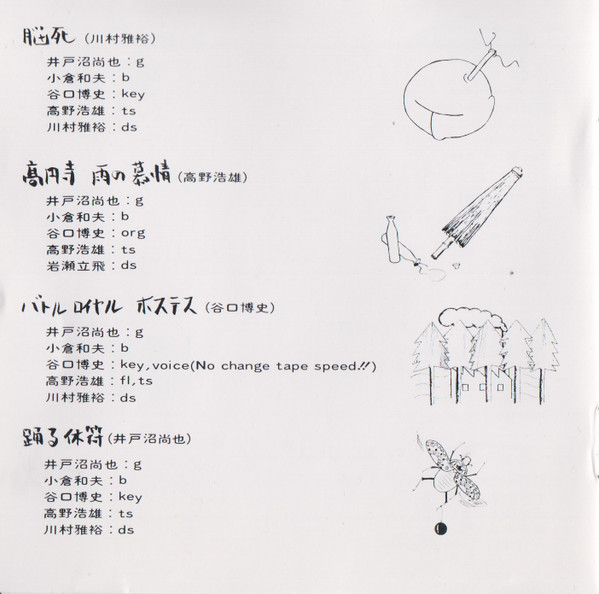 脳死 (川村雅裕)
井戸沼尚也:g
小倉和夫:b
谷口博史:key
高野浩雄:ts
川村雅裕:ds
高円寺 雨の慕情 (高野浩雄)
井戸沼尚也:g
小倉和夫:b
谷口博史:org
高野浩雄:ts
岩瀬立飛:ds
バトル ロイヤル ホステス (谷口博史)
井戸沼尚也:g
小倉和夫:b
谷口博史:key,voice(No change tape speed!!)
高野浩雄:fl,ts
川村雅裕:ds
踊る休符 (井戸沼尚也)
井戸沼尚也:g
小倉和夫:b
谷口博史:key
高野浩雄:ts
川村雅裕:ds